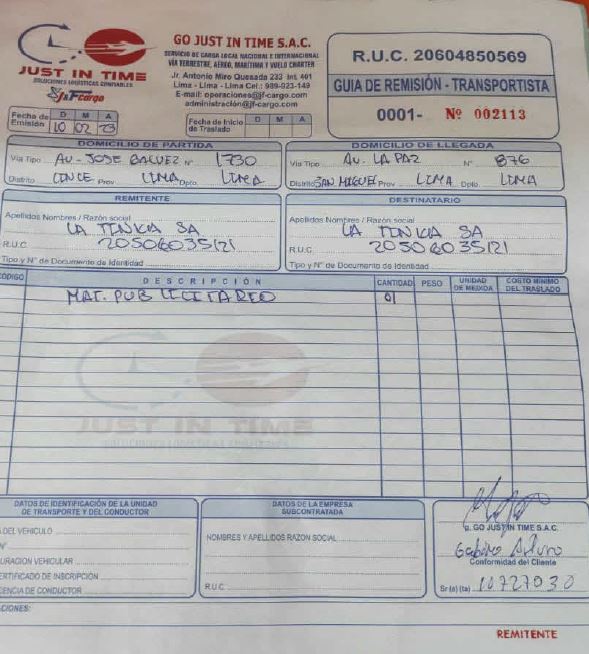 JUST IN TIME
SOLUCIONES LOGÍSTICAS CONFIABLES
J&F cargo
GO JUST IN TIME S.A.C.
SERVICIO DE CARGA LOCAL NACIONAL E INTERNACIONAL
VÍA TERRESTRE, AEREO, MARÍTIMA Y VUELO CHARTER
Jr. Antonio Miro Quesada 233 Int. 401
Lima - Lima - Lima Cel.: 989-923-149
E-mail: operaciones@jf-cargo.com
administración@jf-cargo.com
R.U.C. 20604850569
GUIA DE REMISIÓN - TRANSPORTISTA
0001- Nº 002113
Fecha de Emisión D M A
10 02 23
Fecha de Inicio de Traslado D M A
DOMICILIO DE PARTIDA
Vía Tipo AV- JOSE GALVEZ N° 1730
Distrito LINCE Prov LIMA Dpto. LIMA
DOMICILIO DE LLEGADA
Vía Tipo AV. LA PAZ N° 876
Distrito SAN MIGUEL Prov LIMA Dpto LIMA
REMITENTE
Apellidos Nombres / Razón social
LA TINKA SA
R.U.C. 20506035121
Tipo y N° de Documento de Identidad
DESTINATARIO
Apellidos Nombres / Razón social
LA TINKA SA
R.U.C. 20506035121
Tipo y N° de Documento de Identidad
CODIGO DESCRIPCIÓN CANTIDAD PESO UNIDAD DE MEDIDA COSTO MINIMO DEL TRASLADO
MAT. PUBLICITARIO 01
JUST IN TIME
SOLUCIONES LOGÍSTICAS CONFIABLES
DATOS DE IDENTIFICACIÓN DE LA UNIDAD
DE TRANSPORTE Y DEL CONDUCTOR
DEL VEHICULO
N°
URACION VEHICULAR
ERTIFICADO DE INSCRIPCIÓN
CENCIA DE CONDUCTOR
DATOS DE LA EMPRESA
SUBCONTRATADA
NOMBRES Y APELLIDOS RAZON SOCIAL
R.U.C.
p. GO JUST IN TIME S.A.C.
Arturo
Conformidad del Cliente
Sr (a) (ta)
CIONES:
REMITENTE